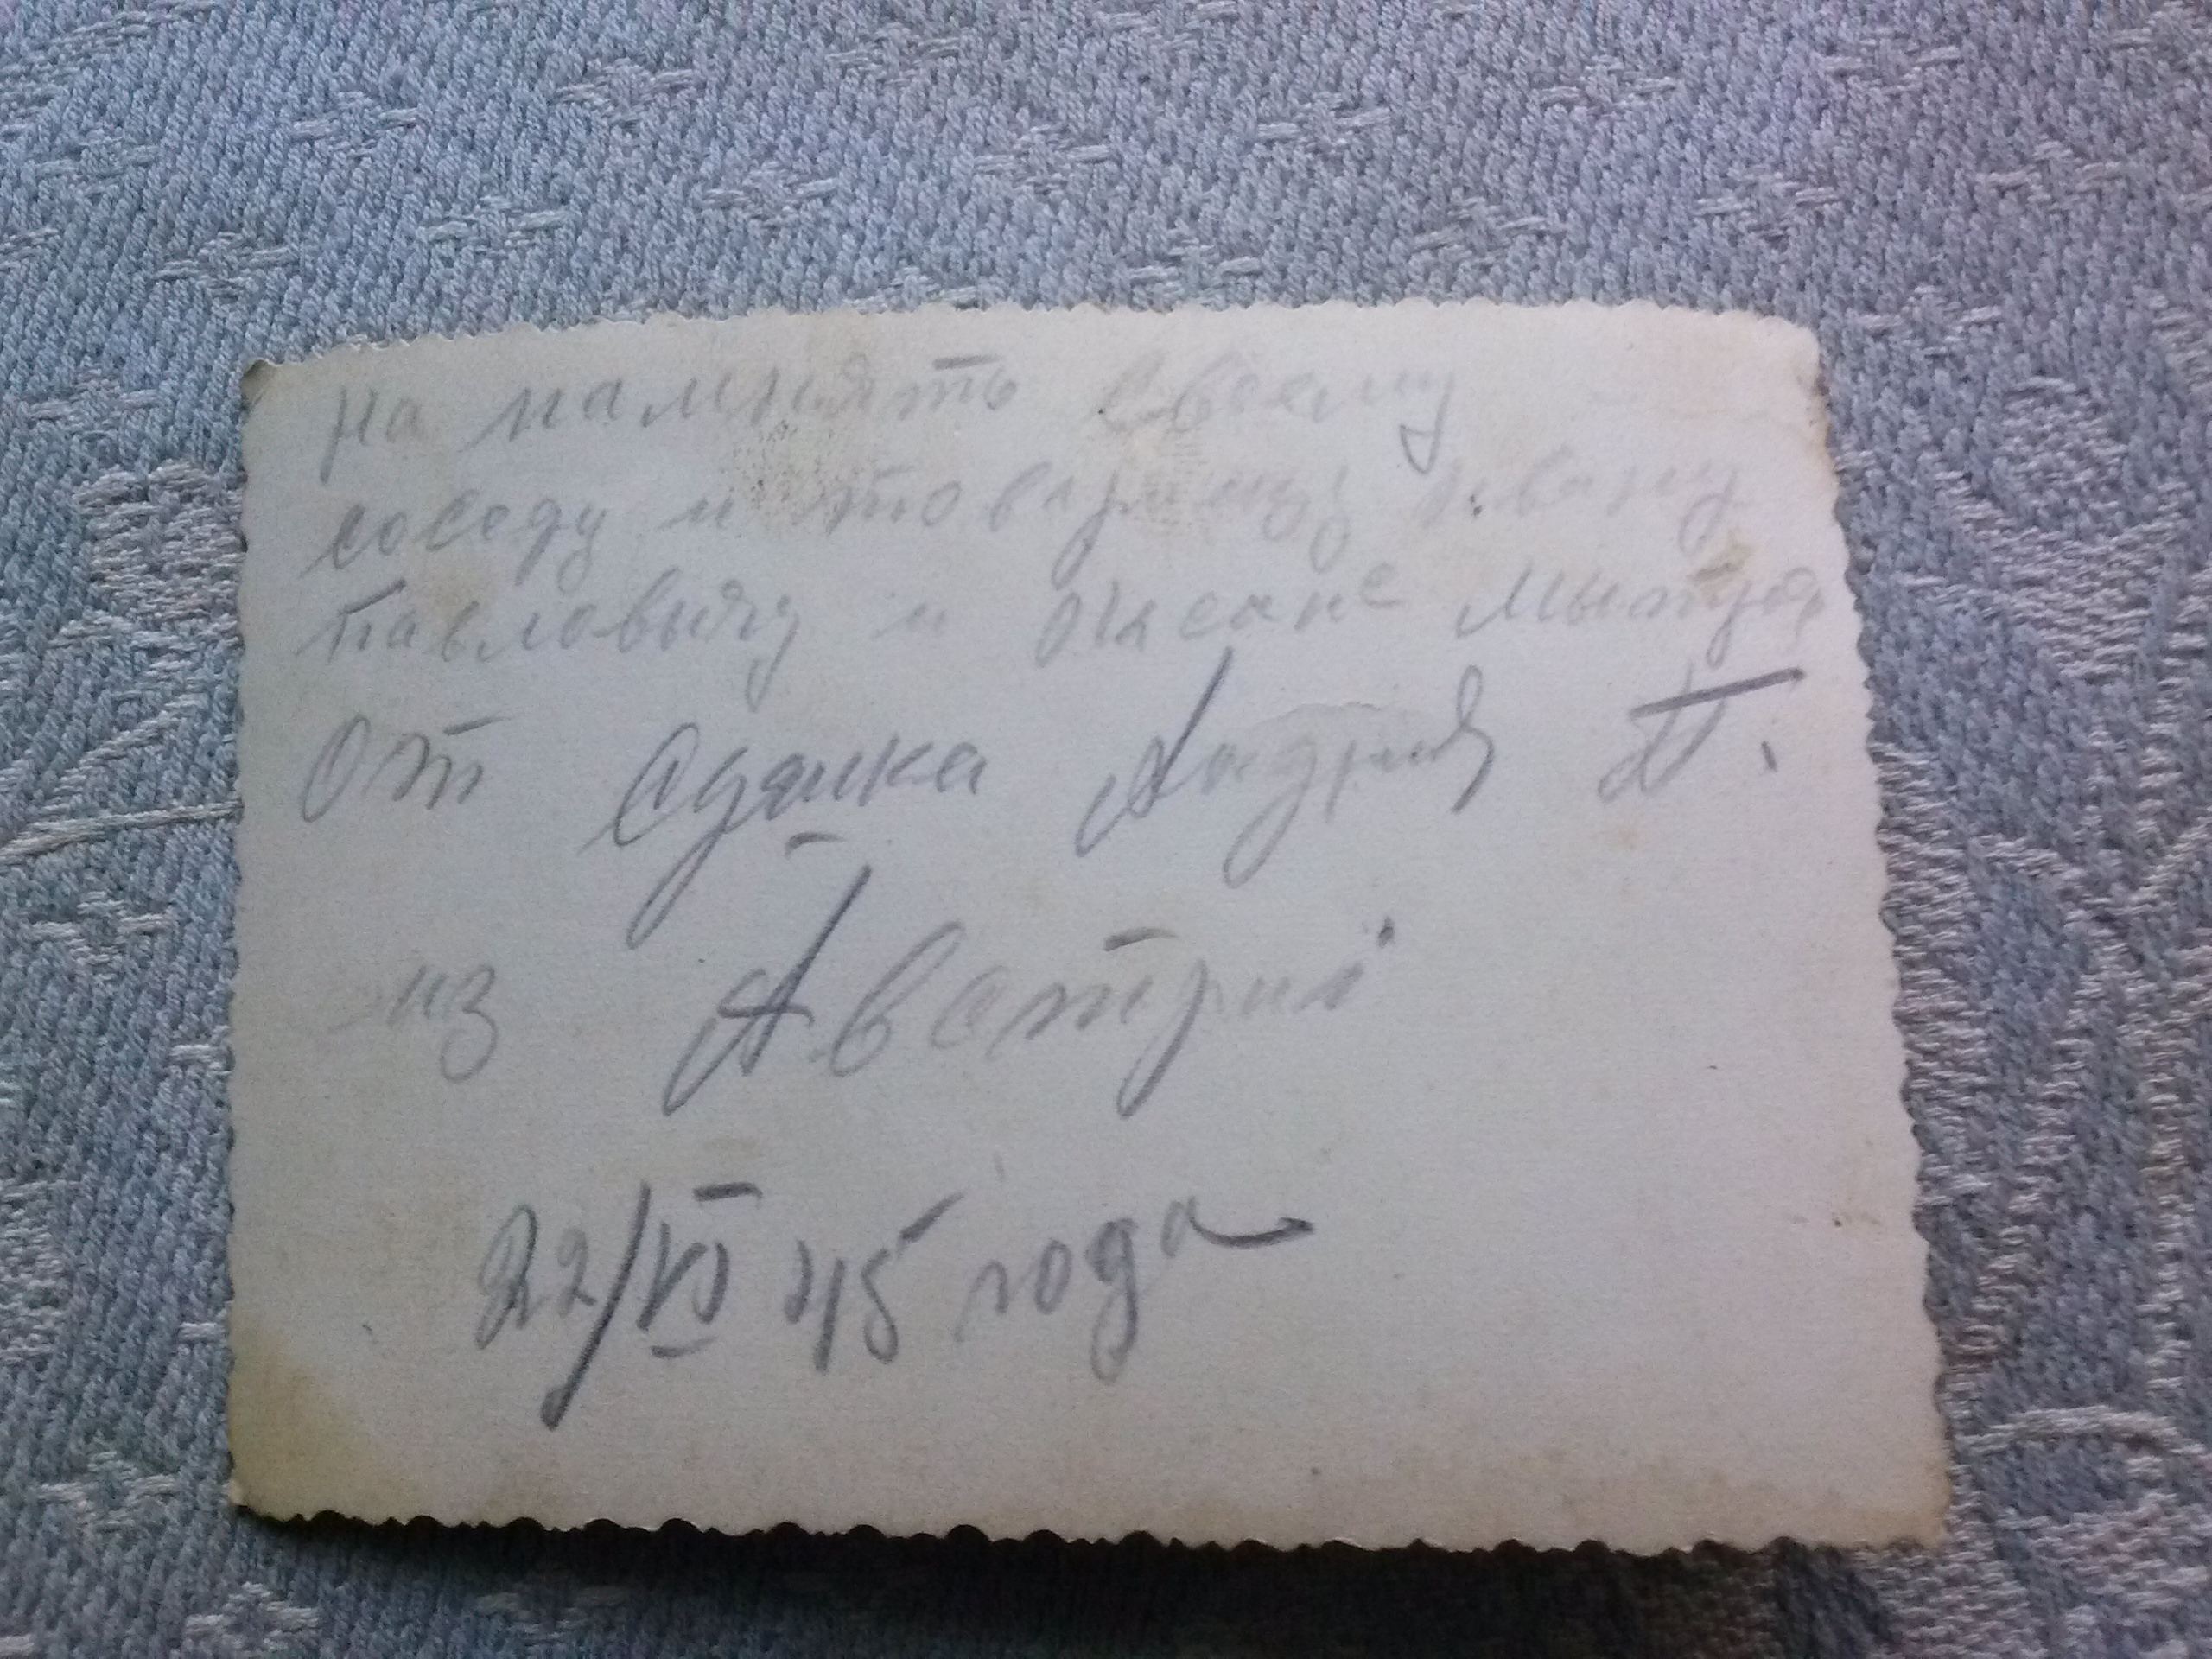 на памнять своему
соседу и товарищу Ивану
Павловычу и Оксане
от Андрия П.
из Австрии
22/VI 45 года